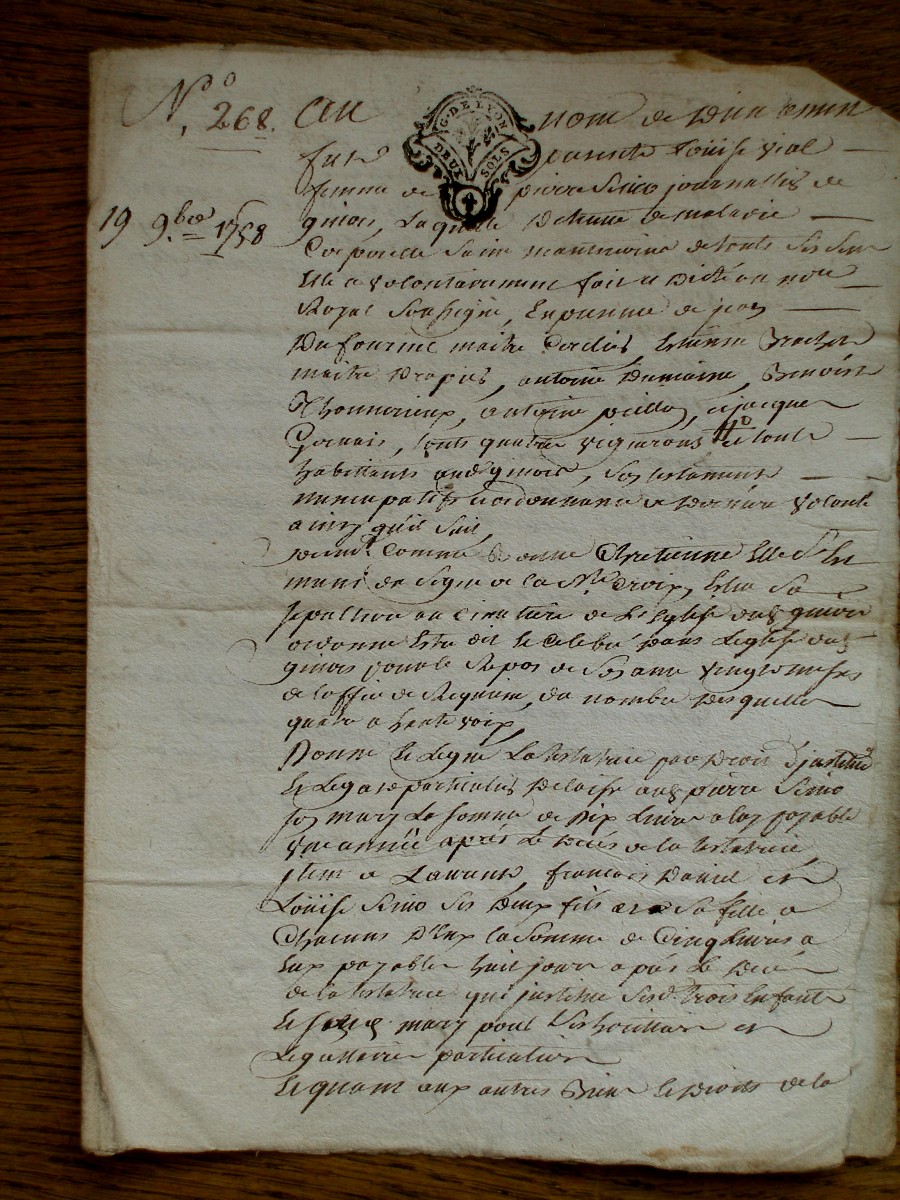 N° 268. Au nom de Dieu amen
G. DE LYON
DEUX SOLS
fut presente Loüise vial
femme de pierre Simo journallier de
ginois, Laquelle Detenue de maladie
Corporelle Saine neantmoins de touts Ses Sens
19 9bre 1758
Elle a volontairement fait et Dicté au nore
Royal Soussigné, En presence de jean
Dufournel maitre Cerclier, Estienne
maitre Drapier, antoine Dumaine, Benoist
Thonnerieux, antoine peillon, et jacques
Gervais, touts quatre vignerons et touts
habittants aud ginois, Son testament
nuncupatif et ordonnance de Derniere volonté
ainsy qu'il Suit
premt Comme bonne Chretienne Elle S'est
munie du Signe de la Ste Croix, Eslu Sa
sepulture au Cimetiere de L'Eglise dud ginois
ordonne Estre dit et Celebré dans Leglise dud
ginois pour le Repos de Son ame vingt messes
de L'office de Requiem, du nombre desquelles
quatre a haute voix
Donne et Legue La testatrice par Droit D'jnstitution
et Legat particulier Delaisse aud pierre Simo
son mary La Somme de Dix Livres a luy payable
une année aprés Le Decés de la testatrice
jtem a Laurent, francois Daniel et
Loüise Simo Ses Deux fils et Sa fille a
Chacuns D'Eux la Somme de Cinq Livres a
Eux payable huit jours aprés Le Decés
de la testatrice qui jnstitue Sesd trois Enfants
et Sond mary pour Ses heritiers et
Legattaires particuliers
Et quant aux autres Biens et Droits de la